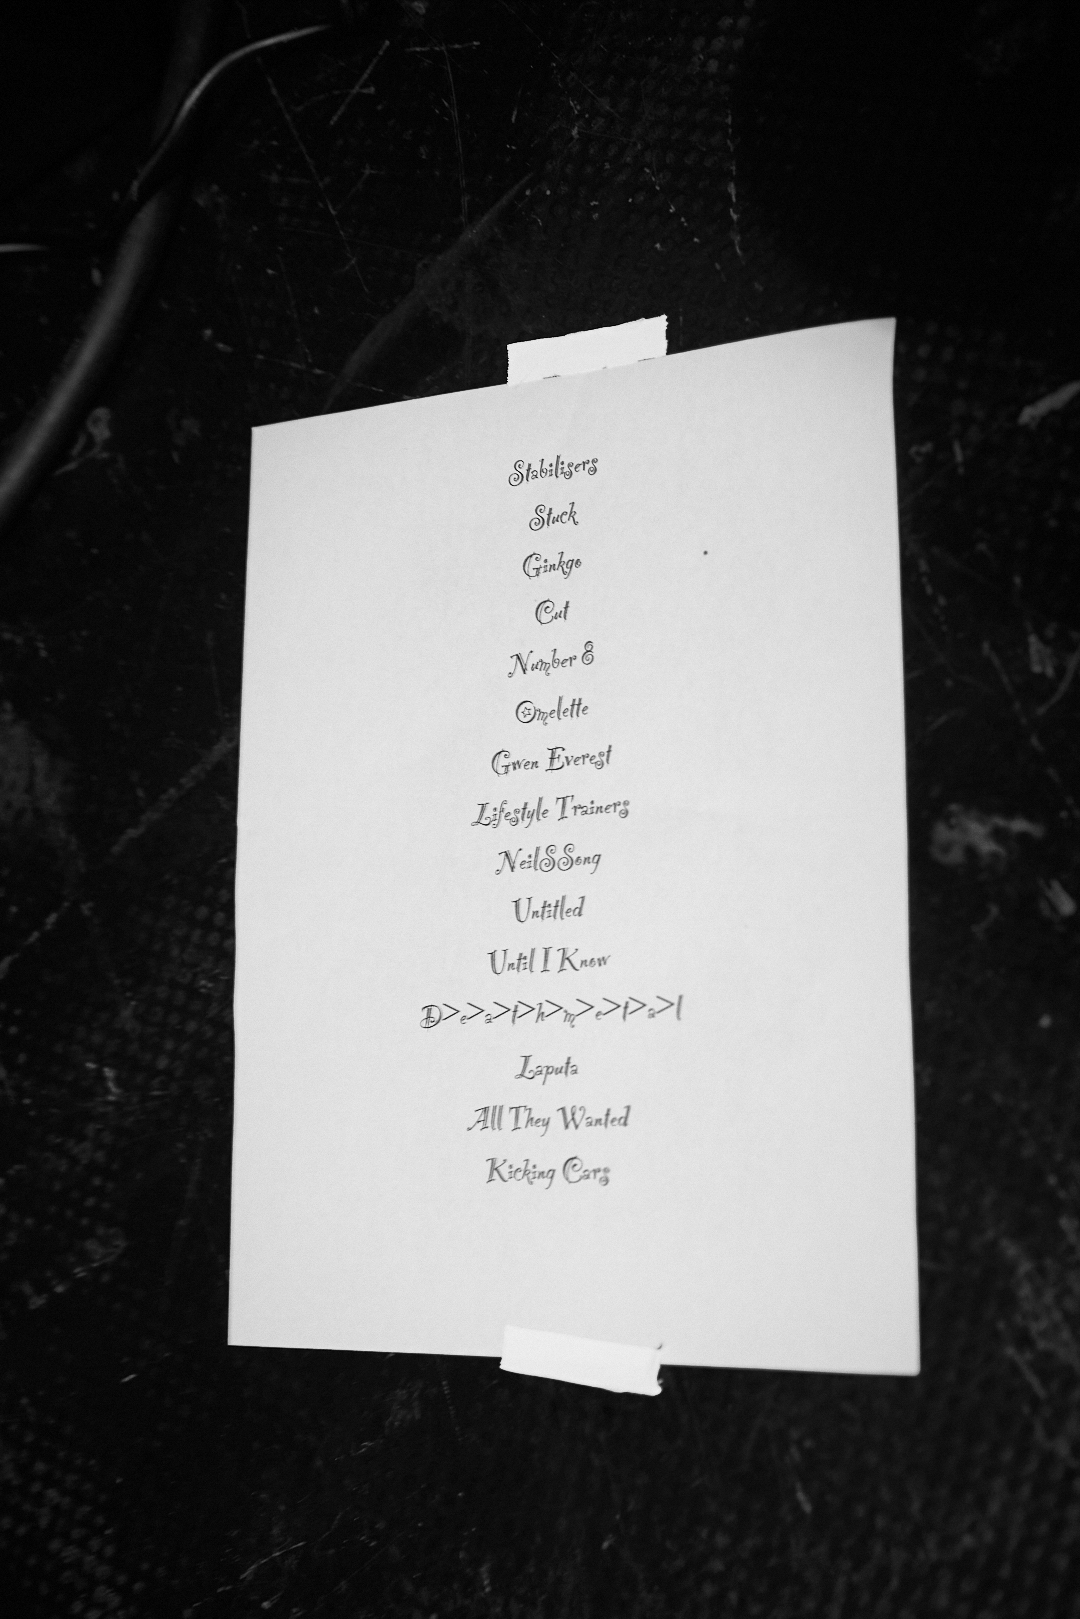 Stabilisers
Stuck
Ginkgo
Cut
Number 8
Omelette
Gwen Everest
Lifestyle Trainers
NeilSSong
Untitled
Until I Know
D>e>a>t>h>m>e>t>a>l
Laputa
All They Wanted
Kicking Cars